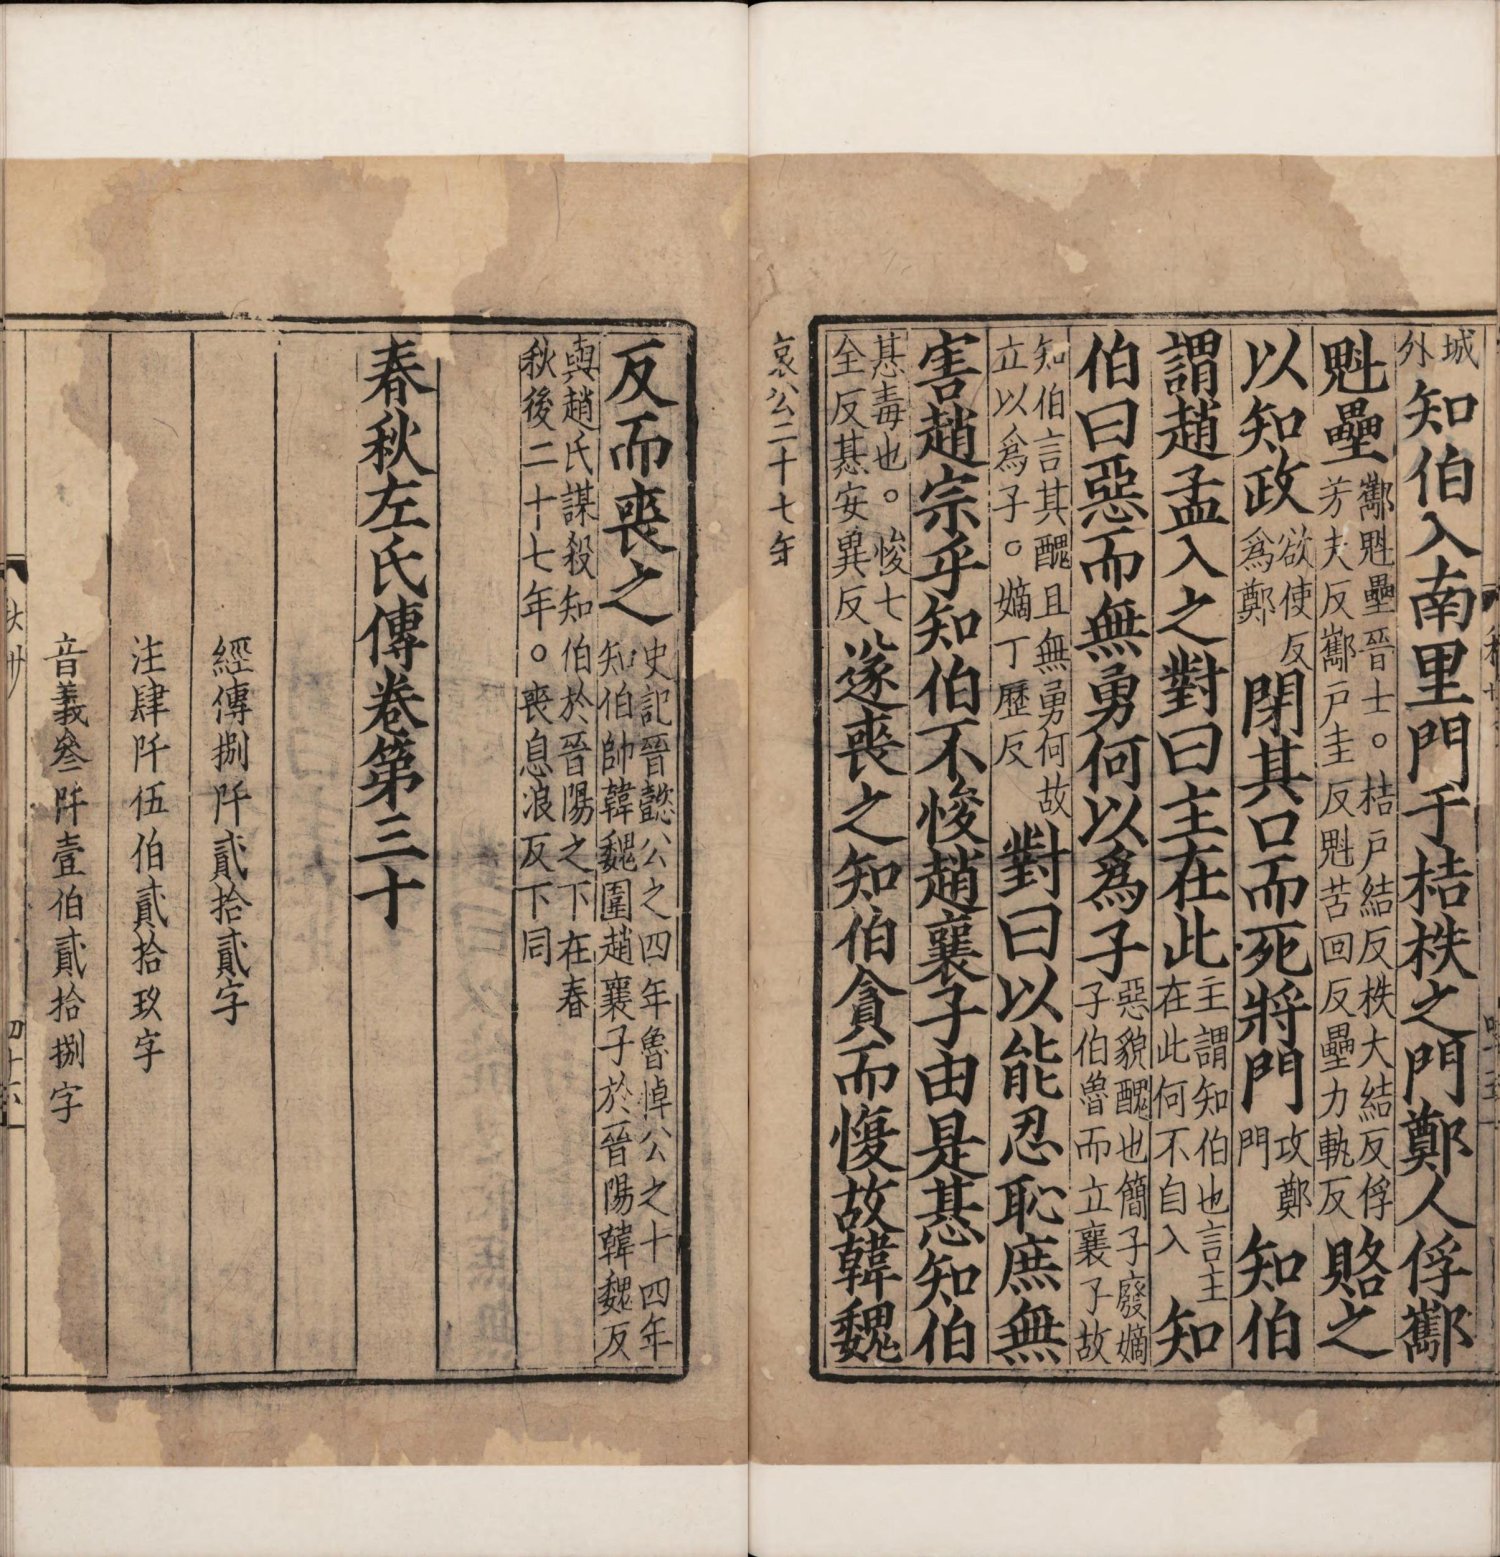 城外知伯入南里門于桔柣之門鄭人俘酅
魁壘酅魁壘晉士。桔戶結反柣大結反俘芳夫反酅戶圭反魁苦回反壘力軌反賂之
以知政欲使反爲鄭閉其口而死將門攻鄭門知伯
謂趙孟入之對曰主在此主謂知伯也言主在此何不自入知
伯曰惡而無勇何以爲子惡貌醜也簡子廢嫡子伯魯而立襄子故
知伯言其醜且無勇何故立以爲子。嫡丁歷反對曰以能忍恥庶無
害趙宗乎知伯不悛趙襄子由是惎知伯
惎毒也。悛七全反惎安兾反遂喪之知伯貪而愎故韓魏
哀公二十七年
反而喪之史記晉懿公之四年魯悼公之十四年知伯帥韓魏圍趙襄子於晉陽韓魏反
與趙氏謀殺知伯於晉陽之下在春秋後二十七年。喪息浪反下同
春秋左氏傳卷第三十
經傳捌阡貳拾貳字
注肆阡伍伯貳拾玖字
音義叄阡壹伯貳拾捌字
四十六